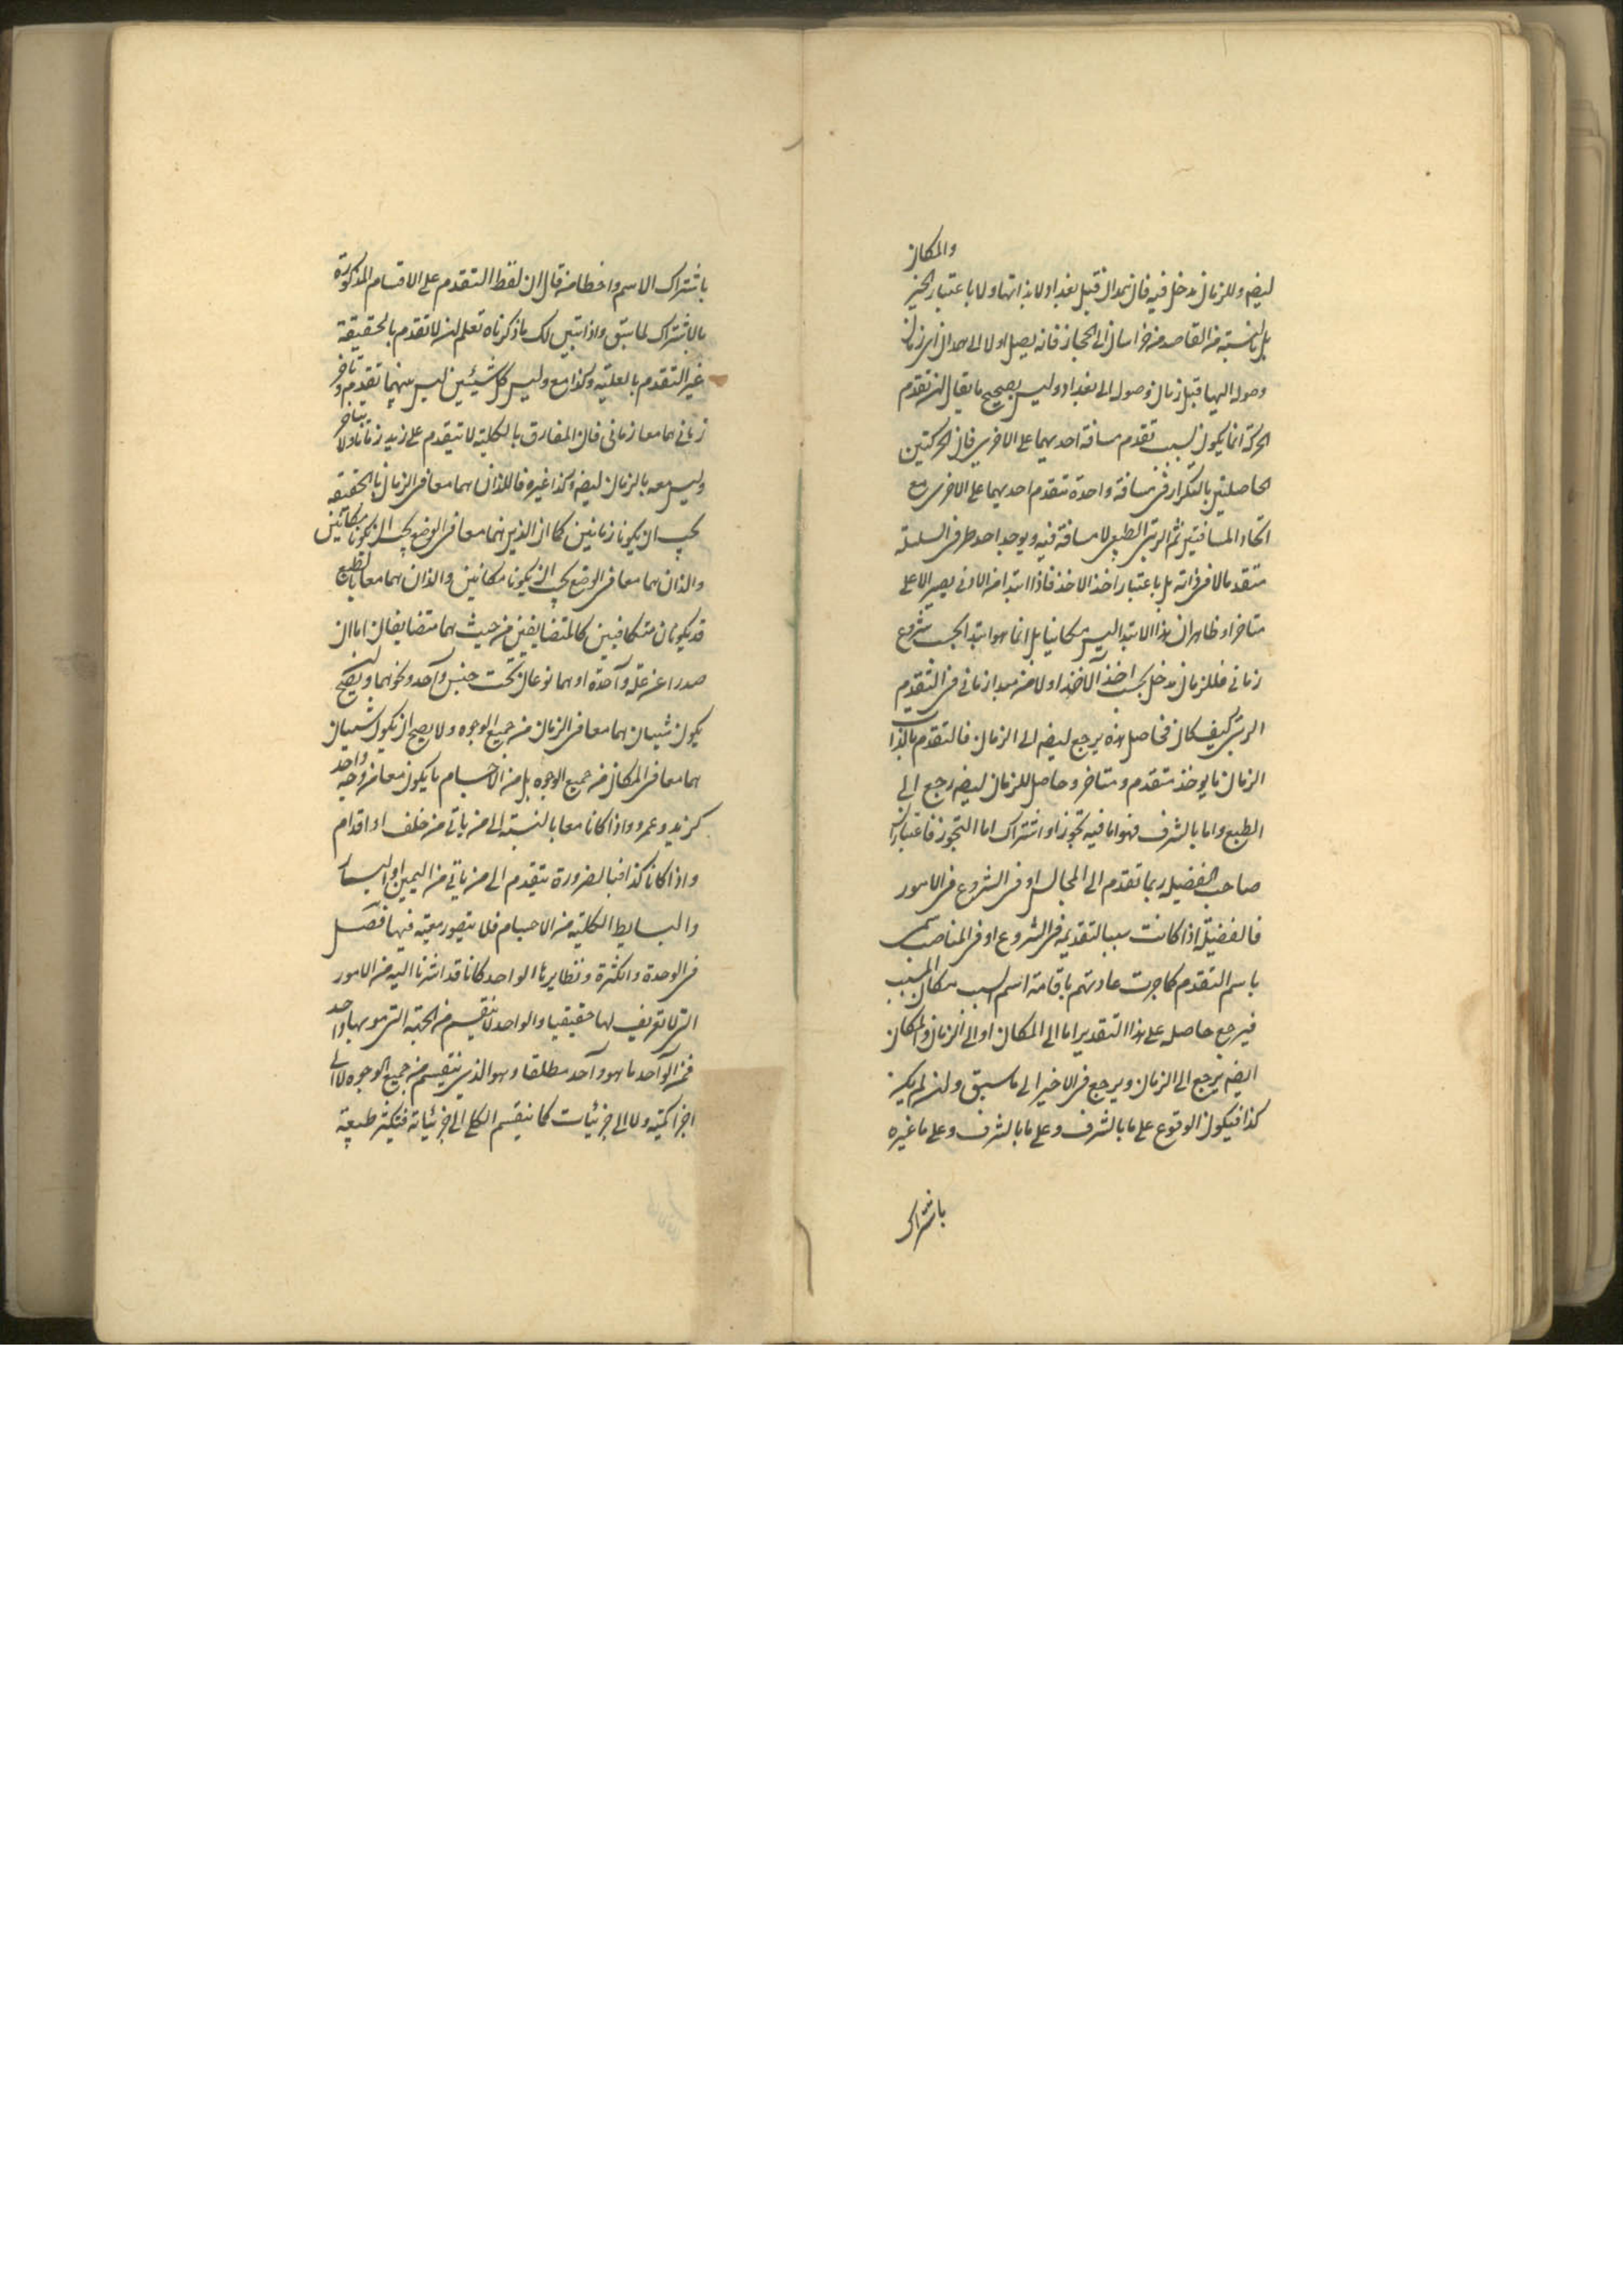 والمكان
ايضا وللزمان مدخل فيه فان همدان قبل بغداد لا بذاتها ولا باعتبار الحيز
بل بالنسبة من القاصد من خراسان الى الحجاز فانه يصل اولا الى همدان اى زمان
وصوله اليها قبل زمان وصوله الى بغداد وليس بصحيح ما يقال ان تقدم
الحركة انما يكون بسبب تقدم مسافة احديهما على الاخرى فان الحركتين
الحاصلتين بالتكرار فى مسافة واحدة تتقدم احديهما على الاخرى مع
اتحاد المسافتين ثم الرتبى الطبيعى لا مسافة فيه ويوجد احد طرفى السلسلة
متقدما لا فى ذاته بل باعتبار اخذ الاخذ فاذا ابتدا من الادنى يصير الاعلى
متاخرا وظاهر ان هذا الابتدا ليس مكانيا بل انما هو ابتدا بحسب شروع
زمانى فللزمان مدخل بحسب اخذ الاخذ اولا من مبدا زمانى فى التقدم
الرتبى كيف كان فحاصل هذه يرجع ايضا الى الزمان فالتقدم بالذات
الزمان ما يوخذ متقدم ومتاخر وحاصل الزمان ايضا رجع الى
الطبع واما بالشرف فهو اما فيه تجوز او اشتراك اما التجوز فاعتبار ان
صاحب الفضيلة ربما تقدم الى المجالس او فى الشروع فى الامور
فالفضيلة اذا كانت سببا لتقديمه فى الشروع او فى المناصب سمى
باسم التقدم كما جرت عادتهم باقامة اسم السبب مكان المسبب
فيرجع حاصله على هذا التقدير اما الى المكان او الى الزمان والمكان
ايضا يرجع الى الزمان ويرجع فى الاخير الى ما سبق وان لم يكن
كذا فيكون الوقوع على ما بالشرف وعلى ما بالشرف وعلى ما غيره
باشتراك
باشتراك الاسم واخطا من قال ان لفظ التقدم على الاقسام المذكورة
بالاشتراك لما سبق واذا تبين لك ما ذكرناه تعلم ان لا تقدم بالحقيقة
غير التقدم بالعلية وكذا مع وليس كل شيئين ليس بينهما تقدم وتاخر
زمانى هما معا زمانى فان المفارق بالكلية لا يتقدم على زيد زمانا ولا يتاخر
وليس معه بالزمان ايضا وكذا غيره فاللذان هما معا فى الزمان بالحقيقة
يجب ان يكونا زمانيين كما ان الذين هما معا فى الوضع يجب ان يكونا مكانيين
والذان هما معا فى الوضع يجب ان يكونا مكانيين والذان هما معا بالطبع
قد يكونان متكافيين كالمتضايفين من حيث هما متضايفان اما ان
صدرا عن علة واحدة او هما نوعان تحت جنس واحد ونحوهما ويصح ان
يكون شيئان هما معا فى الزمان من جميع الوجوه ولا يصح ان يكون شيئان
هما معا فى المكان من جميع الوجوه بل من الاجسام ما يكون معا من وجه واحد
كزيد وعمرو واذا كانا معا بالنسبة الى من ياتى من خلف او اقدام
واذا كانا كذا فبالضرورة يتقدم الى من ياتى من اليمين او اليسار
والبسايط الكلية من الاجسام فلا يتصور معية فيها فصل
فى الوحدة والكثرة ونظايرها الواحد كانا قد اشرنا اليه من الامور
التى لا تعريف لها حقيقيا والواحد لا ينقسم من الجهة التى هو بها واحد
فمن الواحد ما هو واحد مطلقا وهو الذى ينقسم من جميع الوجوه لا الى
اجزا كمية ولا الى جزئيات كما ينقسم الكلى الى جزئياته فتكثر طبيعة